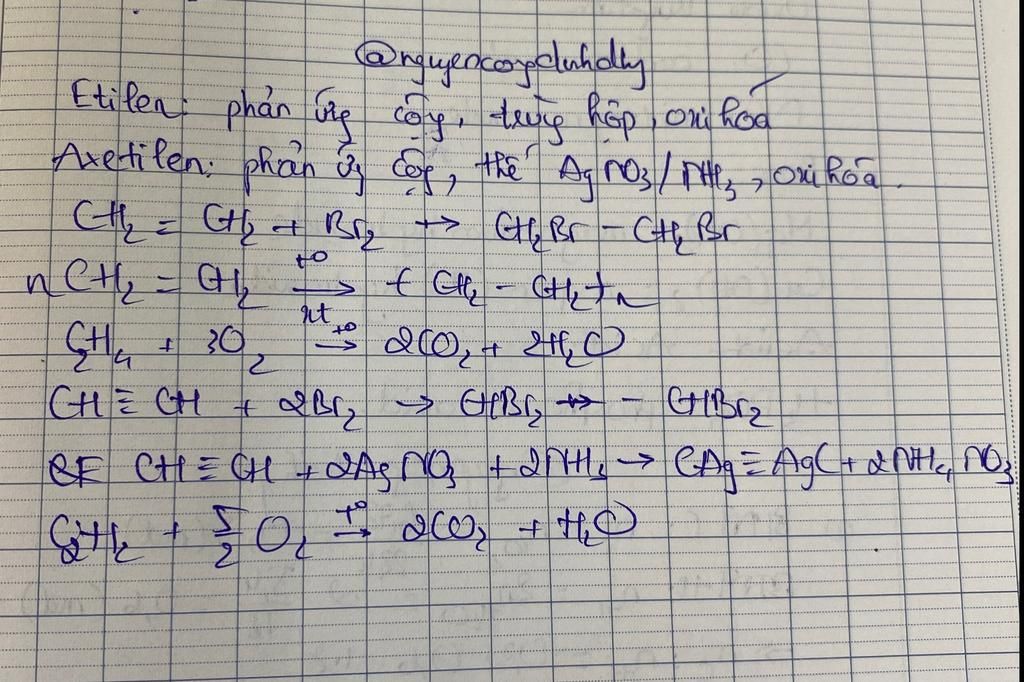 @nguyencongdinhdly
Etilen: phản ứng cộng, trùng hợp, oxi hoá
Axetilen: phản ứng cộng, thế AgNO3/NH3, oxi hóa.
CH2 = CH2 + Br2 → CH2Br – CH2Br
nCH2 = CH2 →(t°, xt) ( CH2 – CH2 )n
C2H4 + 3O2 →(t°) 2CO2 + 2H2O
CH ≡ CH + 2Br2 → CHBr2 – CHBr2
CH ≡ CH + 2AgNO3 + 2NH3 → CAg ≡ AgC + 2NH4NO3
C2H2 + 5/2 O2 →(t°) 2CO2 + H2O